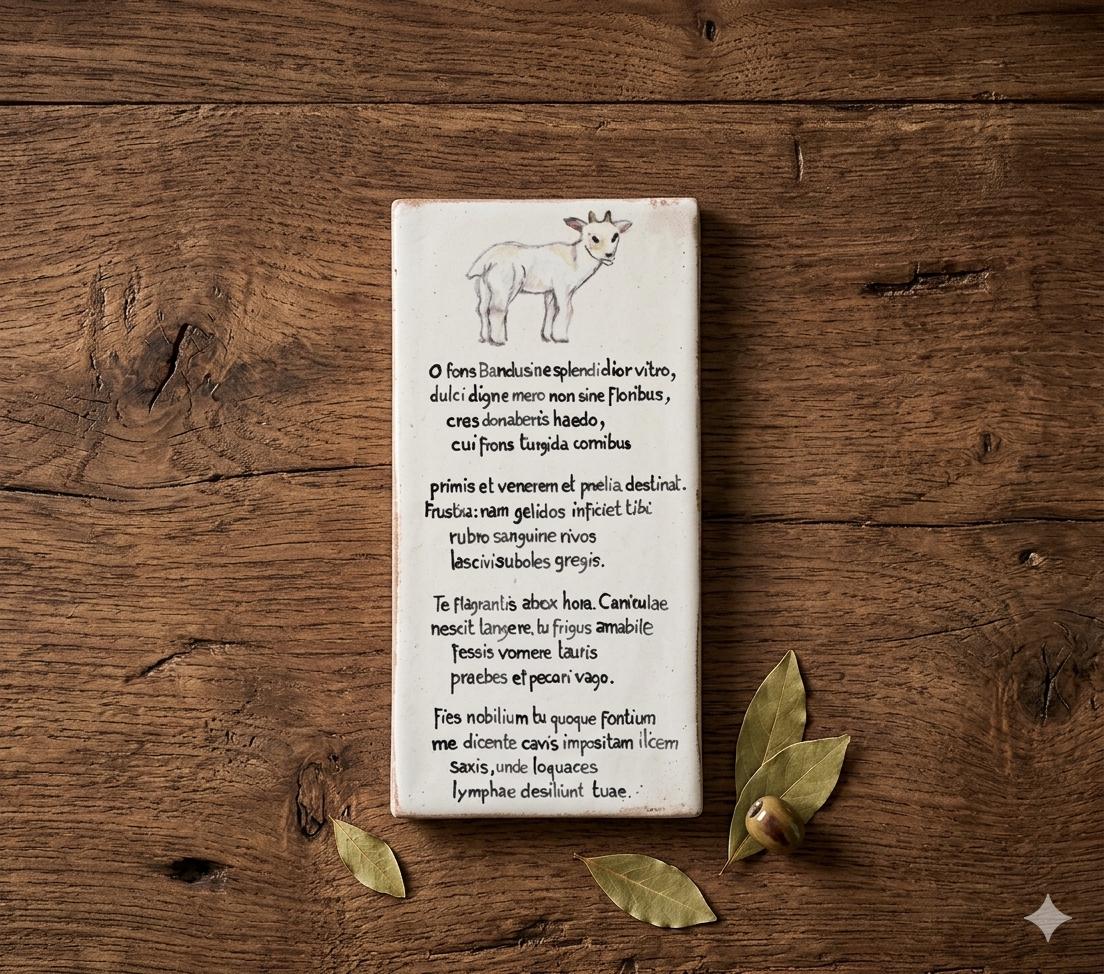 O fons Bandusine splendidior vitro,
dulci digne mero non sine floribus,
cras donaberis haedo,
cui frons turgida cornibus
primis et venerem et proelia destinat.
Frustra: nam gelidos inficiet tibi
rubro sanguine rivos
lascivi suboles gregis.
Te flagrantis abox hora Caniculae
nescit tangere, tu frigus amabile
fessis vomere tauris
praebes et pecori vago.
Fies nobilium tu quoque fontium
me dicente cavis impositam ilcem
saxis, unde loquaces
lymphae desiliunt tuae.